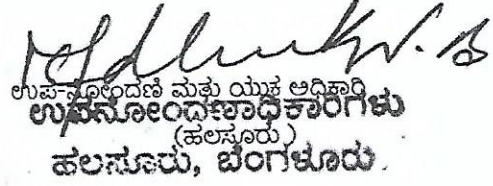 ಉಪನೋಂದಣಿ ಮತ್ತು ಯುಕ್ತ ಅಧಿಕಾರಿ
ಉಪನೋಂದಣಾಧಿಕಾರಿಗಳು
(ಹಲಸೂರು)
ಹಲಸೂರು, ಬೆಂಗಳೂರು.